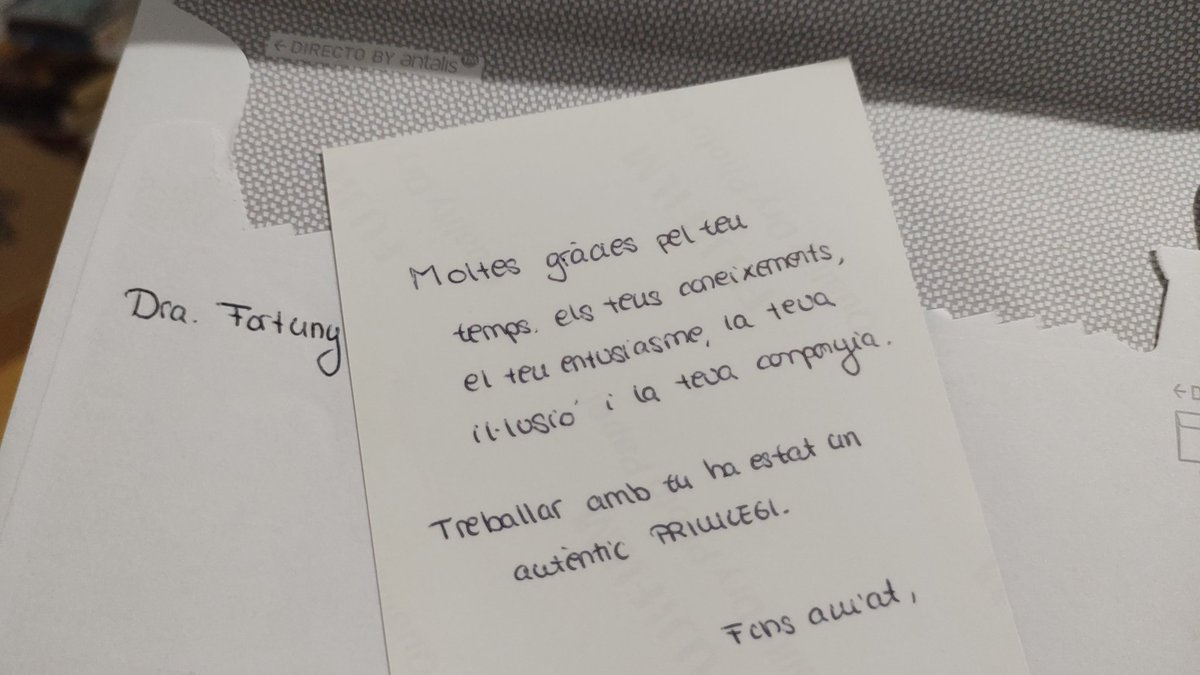 ← DIRECTO BY antalis
Dra. Fortuny
Moltes gràcies pel teu
temps. els teus coneixements,
el teu entusiasme, la teva
il·lusió i la teva companyia.
Treballar amb tu ha estat un
autèntic PRIVILEGI.
Fins aviat,
← D